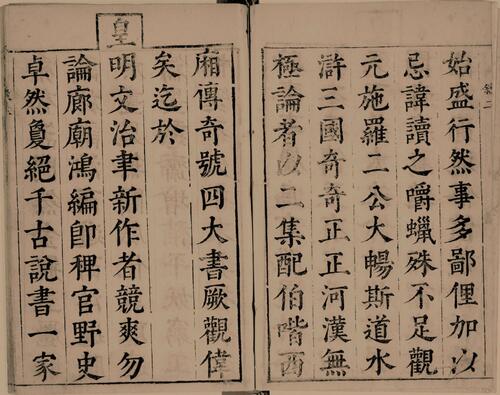 始盛行然事多鄙俚加以
忌諱讀之嚼蠟殊不足觀
元施羅二公大暢斯道水
滸三國奇奇正正河漢無
極論者以二集配伯喈西
廂傳奇號四大書厥觀偉
矣迄於
皇明文治聿新作者競爽勿
論廊廟鴻編即稗官野史
卓然夐絕千古說書一家